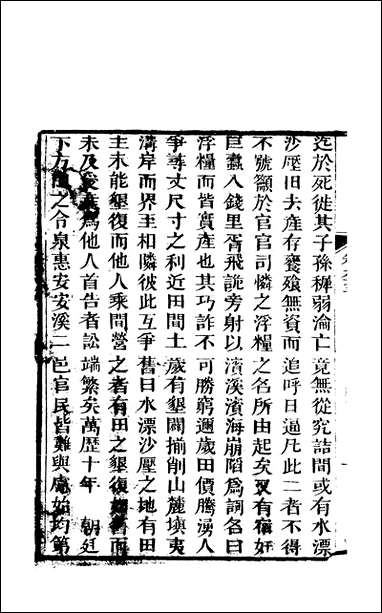 迄於死徙其子孫穉弱淪亡竟無從究詰間或有水漂
沙壓田去產存饔飱無資而追呼日逼凡此二者不得
不號籲於官官司憐之浮糧之名所由起矣又有猾奸
巨蠹入錢里胥飛詭旁射以濱溪濱海崩陷爲詞名曰
浮糧而皆實產也其巧詐不可勝窮邇歲田價騰湧人
爭尋丈尺寸之利近田間土歲有墾闢揃削山麓塡夷
溝岸而界至相隣彼此互爭舊日水漂沙壓之地有田
主未能墾復而他人乘間營之者有田之墾復者而
未及爲他人首告者訟端繁矣萬歷十年朝廷
下方之令泉惠安安溪二邑官民皆難與慮始均第